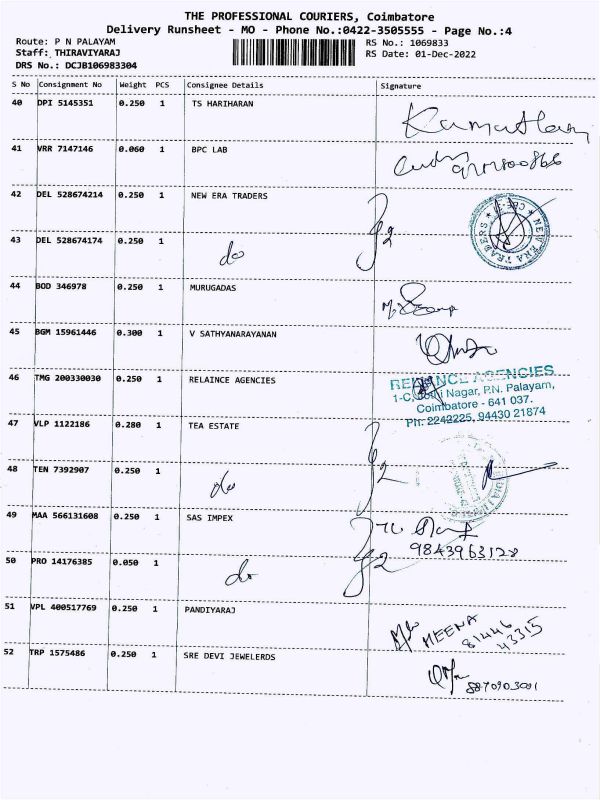 THE PROFESSIONAL COURIERS, Coimbatore
Delivery Runsheet - MO - Phone No.:0422-3505555 - Page No.:4
Route: P N PALAYAM
Staff: THIRAVIYARAJ
DRS No.: DCJB106983304
RS No.: 1069833
RS Date: 01-Dec-2022
S No Consignment No Weight PCS Consignee Details Signature
40 DPI 5145351 0.250 1 TS HARIHARAN
41 VRR 7147146 0.060 1 BPC LAB
42 DEL 528674214 0.250 1 NEW ERA TRADERS
NEW ERA TRADERS
43 DEL 528674174 0.250 1 do
44 BOD 346978 0.250 1 MURUGADAS
45 BGM 15961446 0.300 1 V SATHYANARAYANAN
46 TMG 200330030 0.250 1 RELAINCE AGENCIES
RELIANCE AGENCIES
Nagar, P.N. Palayam,
Coimbatore - 641 037.
Ph: 2242225, 94430 21874
47 VLP 1122186 0.280 1 TEA ESTATE
48 TEN 7392907 0.250 1 do
49 MAA 566131608 0.250 1 SAS IMPEX
9843963128
50 PRO 14176385 0.050 1 do
51 VPL 400517769 0.250 1 PANDIYARAJ
MEENA
81446
43315
52 TRP 1575486 0.250 1 SRE DEVI JEWELERDS
8870903001